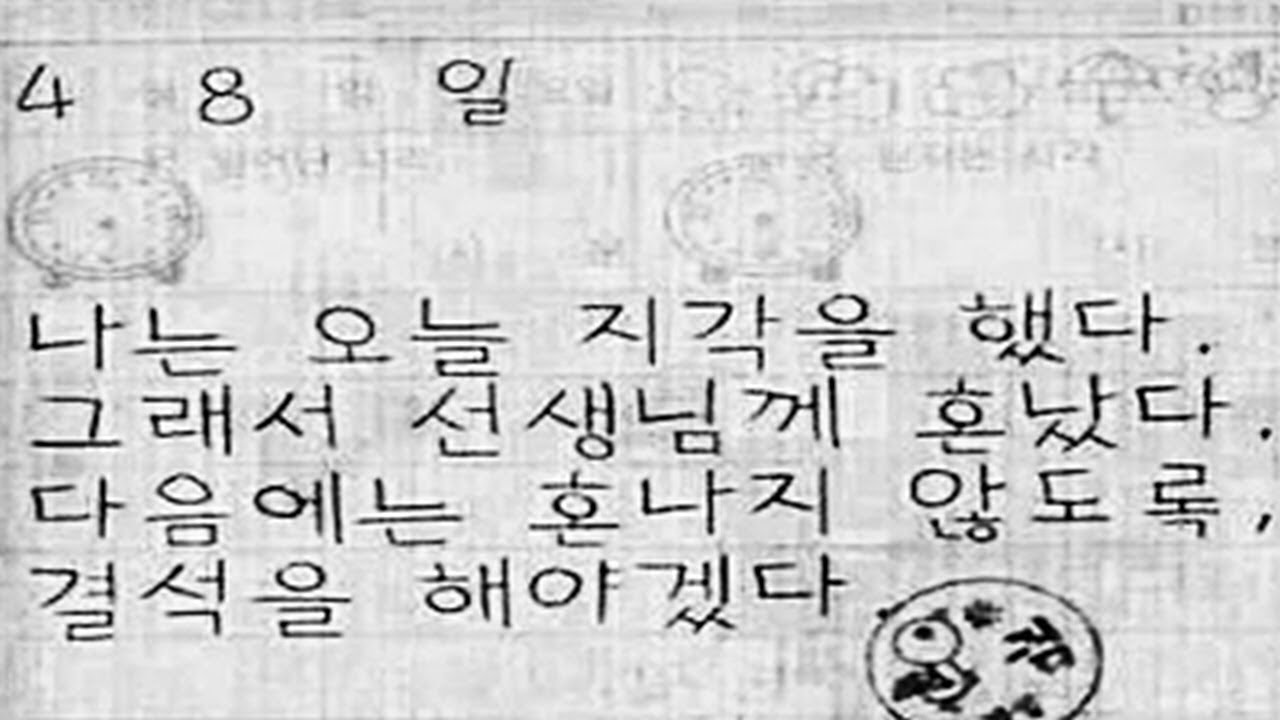 4 8 일
일어난 시각
나는 오늘 지각을 했다.
그래서 선생님께 혼났다.
다음에는 혼나지 않도록,
결석을 해야겠다